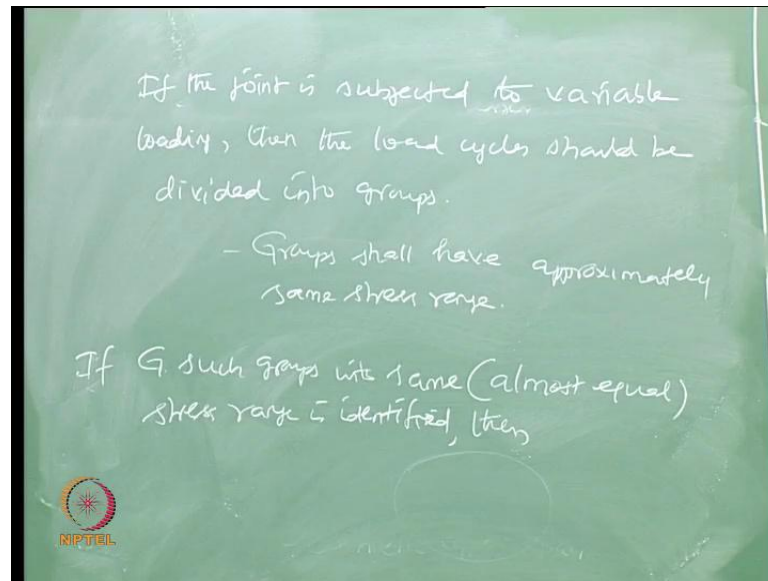 If the joint is subjected to variable
loading, then the load cycles should be
divided into groups.
- Groups shall have approximately
same stress range.
If G such groups with same (almost equal)
stress range is identified, then
NPTEL